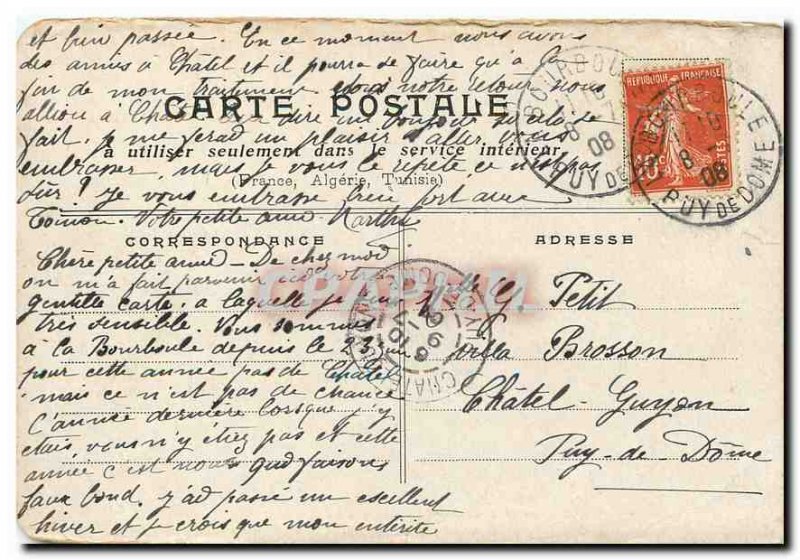 et bien passée. En ce moment nous avons
des amies à Châtel et il pourra se faire qu'à la
fin de mon traitement notre retour nous
allion à Cha dire un bonjour si cela se
fait, je me ferai un plaisir d'aller vous
embrasser, mais je vous le répète ce n'est pas
sûr! Je vous embrasse bien fort avec
Toinon. Votre petite amie Marthe
CARTE POSTALE
à utiliser seulement dans le service intérieur
(France, Algérie, Tunisie)
CORRESPONDANCE
Chère petite amie - De chez moi
on m'a fait parvenir ici votre
gentille carte, à laquelle je suis
très sensible. Nous sommes
à La Bourboule depuis le 23 juin
pour cette année pas de Châtel
mais ce n'est pas de chance
L'année dernière lorsque j'y
étais, vous n'y étiez pas et cette
année c'est nous qui faisons
faux bond. J'ai passé un excellent
hiver et je crois que mon entérite
ADRESSE
Melle G. Petit
Villa Brosson
Châtel-Guyon
Puy-de-Dôme
REPUBLIQUE FRANÇAISE
10c
POSTES
LA BOURBOULE
8
08
PUY DE DOME